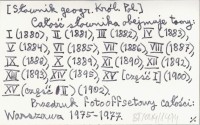 [Słownik geogr. Król. Pol.]
Całość słownika obejmuje tomy:
I (1880), II (1881), III (1882), IV (1883),
V (1884), VI (1885), VII (1886), VIII (1887),
IX (1888), X (1889), XI (1890), XII (1892),
XIII (1893), XIV (1895), XV [część I] (1900),
XV [część II] (1902).
Przedruk fotooffsetowy całości:
Warszawa 1975-1977.